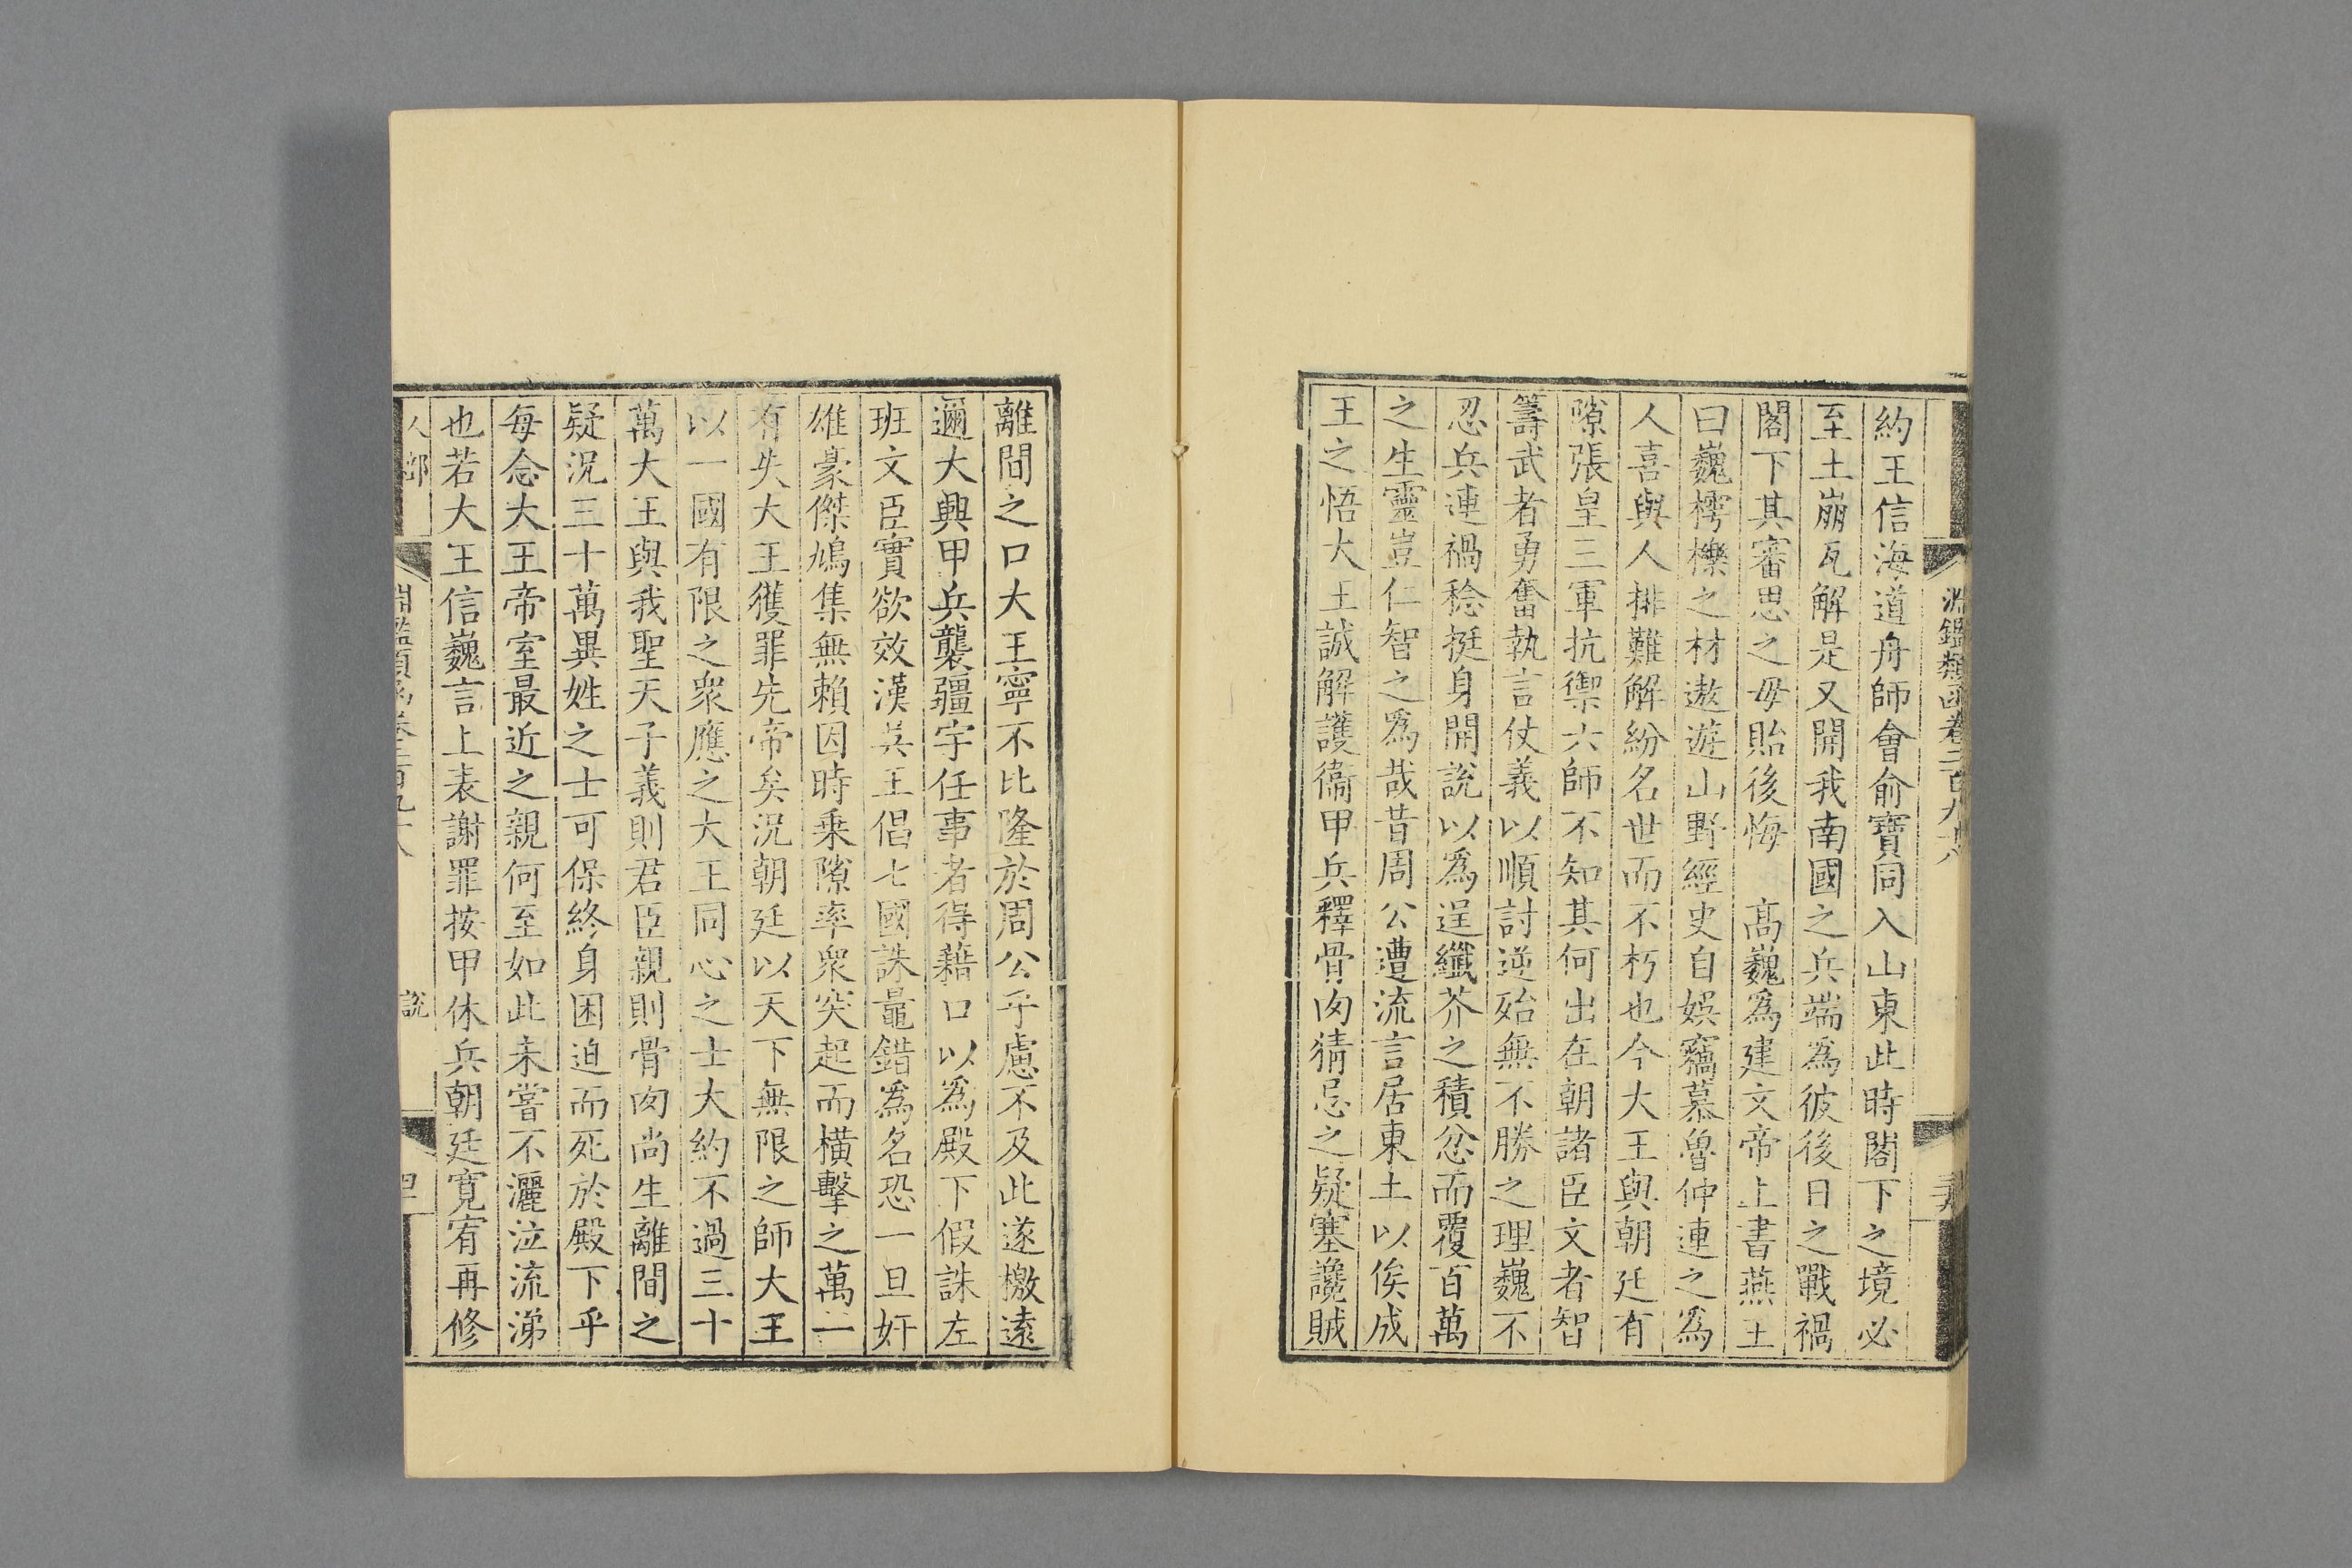 淵鑑類函卷三百九十八
約王信海道舟師會俞寶同入山東此時閣下之境必
至土崩瓦解是又開我南國之兵端爲彼後日之戰禍
閣下其審思之毋貽後悔　高巍爲建文帝上書燕王
曰巍樗櫟之材遨遊山野經史自娛竊慕魯仲連之爲
人喜與人排難解紛名世而不朽也今大王與朝廷有
隙張皇三軍抗禦六師不知其何出在朝諸臣文者智
籌武者勇奮執言仗義以順討逆殆無不勝之理巍不
忍兵連禍稔挺身開說以爲逞纖芥之積忿而覆百萬
之生靈豈仁智之爲哉昔周公遭流言居東土以俟成
王之悟大王誠解護衞甲兵釋骨肉猜忌之疑塞讒賊
離間之口大王寧不比隆於周公乎慮不及此遂檄遠
邇大興甲兵襲疆宇任事者得藉口以爲殿下假誅左
班文臣實欲效漢吳王倡七國誅鼂錯爲名恐一旦奸
雄豪傑鳩集無賴因時乗隙率衆突起而橫擊之萬一
有失大王獲罪先帝矣況朝廷以天下無限之師大王
以一國有限之衆應之大王同心之士大約不過三十
萬大王與我聖天子義則君臣親則骨肉尚生離間之
疑況三十萬異姓之士可保終身困迫而死於殿下乎
每念大王帝室最近之親何至如此未嘗不灑泣流涕
也若大王信巍言上表謝罪按甲休兵朝廷寛宥再修
人部
說